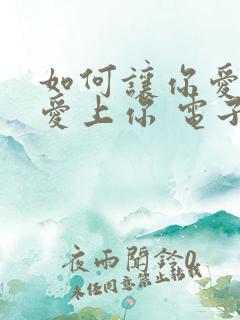 如何讓你愛
愛上你 電子
夜雨聞鈴0
未經同意禁止轉載